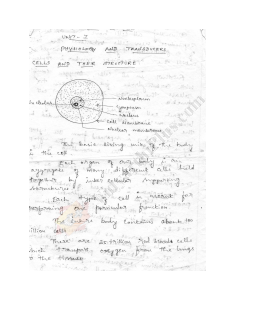 UNIT - I
PHYSIOLOGY AND TRANSDUCERS
CELLS AND THEIR STRUCTURE
Nucleoplasm
Cytoplasm
Nucleus
cell membrane
Nuclear membrane
The basic living unit of the body
is the cell
Each organ of our body is an
aggregate of many different cells held
together by inter cellular supporting
structures
Each type of cell is
performing one particular function
The entire body contains about
cells
There are 25 trillion red blood cells
transport oxygen from the lungs
to the tissues